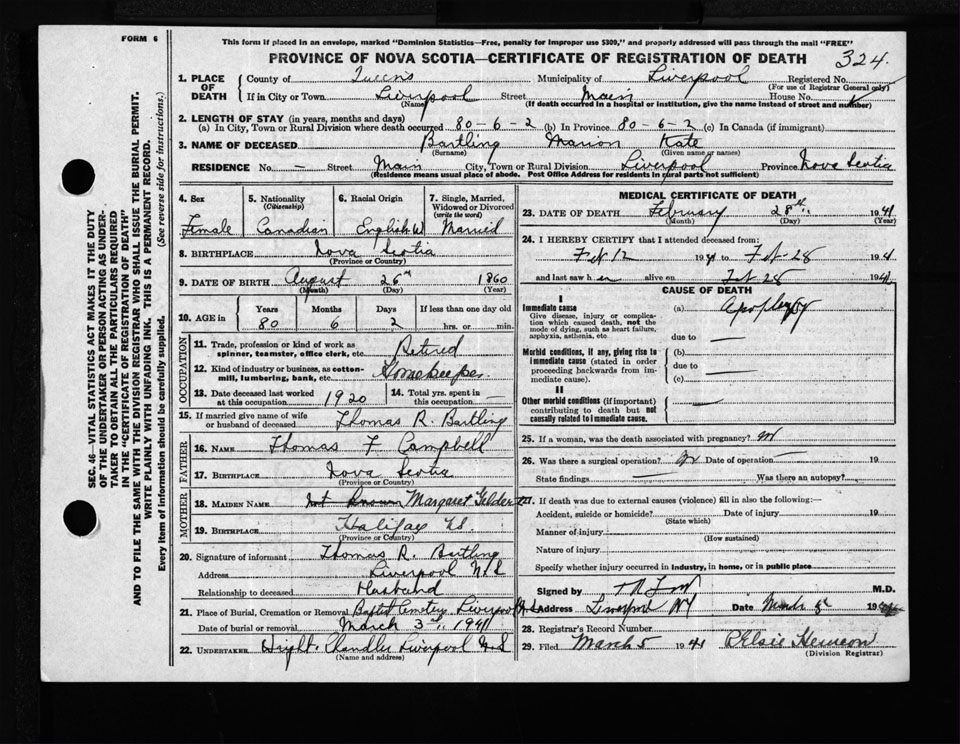 FORM 6
This form if placed in an envelope, marked "Dominion Statistics—Free, penalty for improper use $309," and properly addressed will pass through the mail "FREE"
PROVINCE OF NOVA SCOTIA—CERTIFICATE OF REGISTRATION OF DEATH 324
1. PLACE OF DEATH
County of Queens Municipality of Liverpool Registered No.
(For use of Registrar General only)
If in City or Town Liverpool Street Main House No.
(Name) (If death occurred in a hospital or institution, give the name instead of street and number)
2. LENGTH OF STAY (in years, months and days)
(a) In City, Town or Rural Division where death occurred 80-6-2 (b) In Province 80-6-2 (c) In Canada (if immigrant)
3. NAME OF DECEASED Bartling Marion Kate
(Surname) (Given name or names)
RESIDENCE No. — Street Main City, Town or Rural Division Liverpool Province Nova Scotia
(Residence means usual place of abode. Post Office Address for residents in rural parts not sufficient)
4. Sex Female
5. Nationality (Citizenship) Canadian
6. Racial Origin English
7. Single, Married, Widowed or Divorced (write the word) Married
8. BIRTHPLACE Nova Scotia
(Province or Country)
9. DATE OF BIRTH August 26th 1860
(Month) (Day) (Year)
10. AGE in Years 80 Months 6 Days 2 If less than one day old
hrs. or min.
OCCUPATION
11. Trade, profession or kind of work as spinner, teamster, office clerk, etc. Retired
12. Kind of industry or business, as cotton-mill, lumbering, bank, etc. Homekeeper
13. Date deceased last worked at this occupation 1920
14. Total yrs. spent in this occupation —
15. If married give name of wife or husband of deceased Thomas R. Bartling
FATHER
16. NAME Thomas F Campbell
17. BIRTHPLACE Nova Scotia
(Province or Country)
MOTHER
18. MAIDEN NAME Not Known Margaret Geldert
19. BIRTHPLACE Halifax NS.
(Province or Country)
20. Signature of informant Thomas R. Bartling
Address Liverpool N.S
Relationship to deceased Husband
21. Place of Burial, Cremation or Removal Baptist Cemetery Liverpool N.S
Date of burial or removal March 3rd, 1941
22. UNDERTAKER Wright Chandler Liverpool N.S
(Name and address)
MEDICAL CERTIFICATE OF DEATH
23. DATE OF DEATH February 28th 1941
(Month) (Day) (Year)
24. I HEREBY CERTIFY that I attended deceased from:
Feb 12 1941 to Feb-28 1941
and last saw her alive on Feb 28 1941
CAUSE OF DEATH
I
Immediate cause
Give disease, injury or complication which caused death, not the mode of dying, such as heart failure, asphyxia, asthenia, etc.
(a) Apoplexy
due to —
Morbid conditions, if any, giving rise to immediate cause (stated in order proceeding backwards from immediate cause).
(b)
due to —
(c)
II
Other morbid conditions (if important) contributing to death but not causally related to immediate cause.
25. If a woman, was the death associated with pregnancy? No
26. Was there a surgical operation? No Date of operation — 19
State findings Was there an autopsy?
27. If death was due to external causes (violence) fill in also the following:—
Accident, suicide or homicide? Date of injury 19
(State which)
Manner of injury
(How sustained)
Nature of injury
Specify whether injury occurred in industry, in home, or in public place
Signed by M.D.
Address Liverpool NS Date March 19
28. Registrar's Record Number
29. Filed March 5 1941 Elsie Hemeon
(Division Registrar)
SEC. 46—VITAL STATISTICS ACT MAKES IT THE DUTY
OF THE UNDERTAKER OR PERSON ACTING AS UNDERTAKER TO OBTAIN ALL THE PARTICULARS REQUIRED
IN THE "CERTIFICATE OF REGISTRATION OF DEATH"
AND TO FILE THE SAME WITH THE DIVISION REGISTRAR WHO SHALL ISSUE THE BURIAL PERMIT.
WRITE PLAINLY WITH UNFADING INK. THIS IS A PERMANENT RECORD.
Every item of information should be carefully supplied. (See reverse side for instructions.)